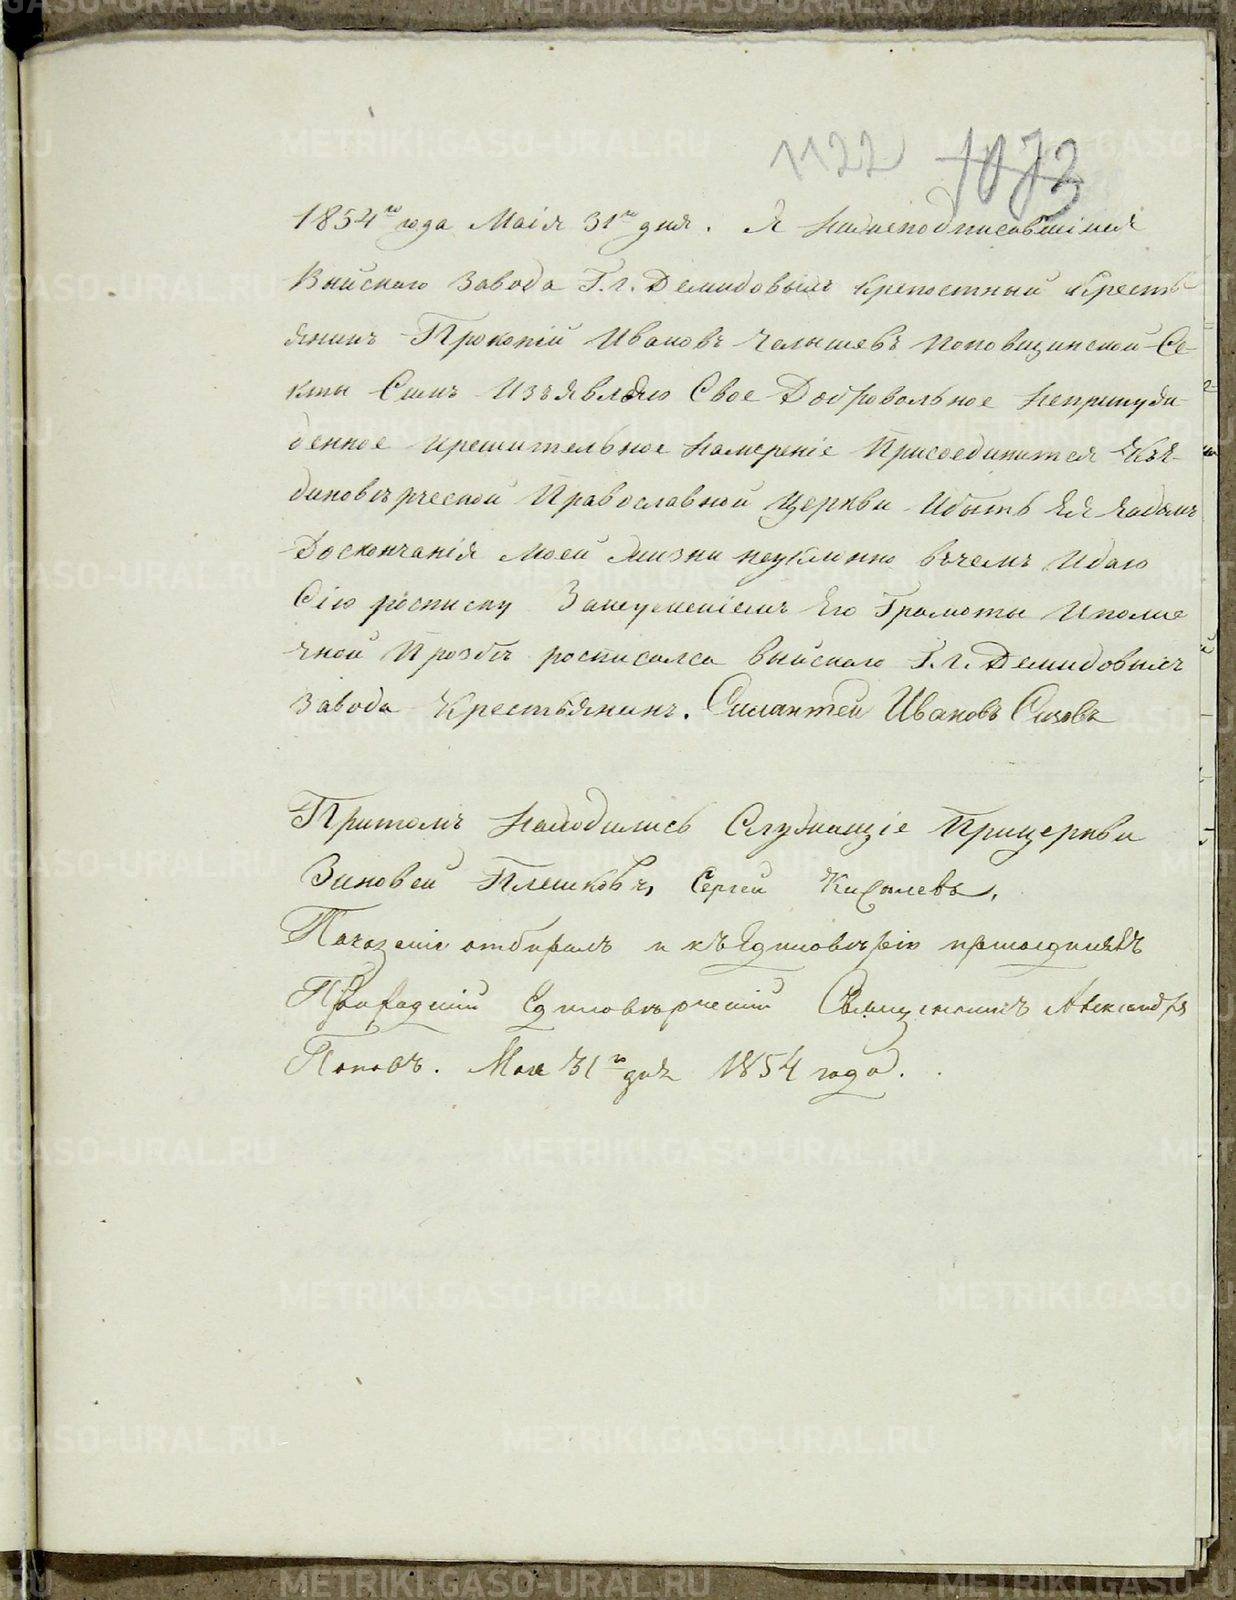 1122 1073
1854го года Маія 31го дня. Я нижеподписавшійся
Выйскаго Завода Г.г. Демидовыхъ крепостный кресть-
янинъ Прокопій Ивановъ Поповщинской Се-
кты Симъ Изъявляю Свое Добровольное непринуж-
денное ирешительное намереніе Присоединится къе-
диноверческой Православной Церкви Ибыть Ея чадомъ
Доскончанія моей жизни неуклонно вчемъ Идаю
Сію росписку Занеуменіемъ Его Грамоты Иполич
чной Прозбе росписался выйскаго Г.г. Демидовыхъ
завода Крестьянинъ. Силантей Ивановъ Сизовъ
Притомъ находились Служащіе Прицеркви
Зиновей Плешковъ, Сергей Киселевъ.
Показаніе отбиралъ и къ Единоверію присоединилъ
Единоверческій Священникъ Александръ
Поповъ. Мая 31го дня 1854 года.
METRIKI.GASO-URAL.RU